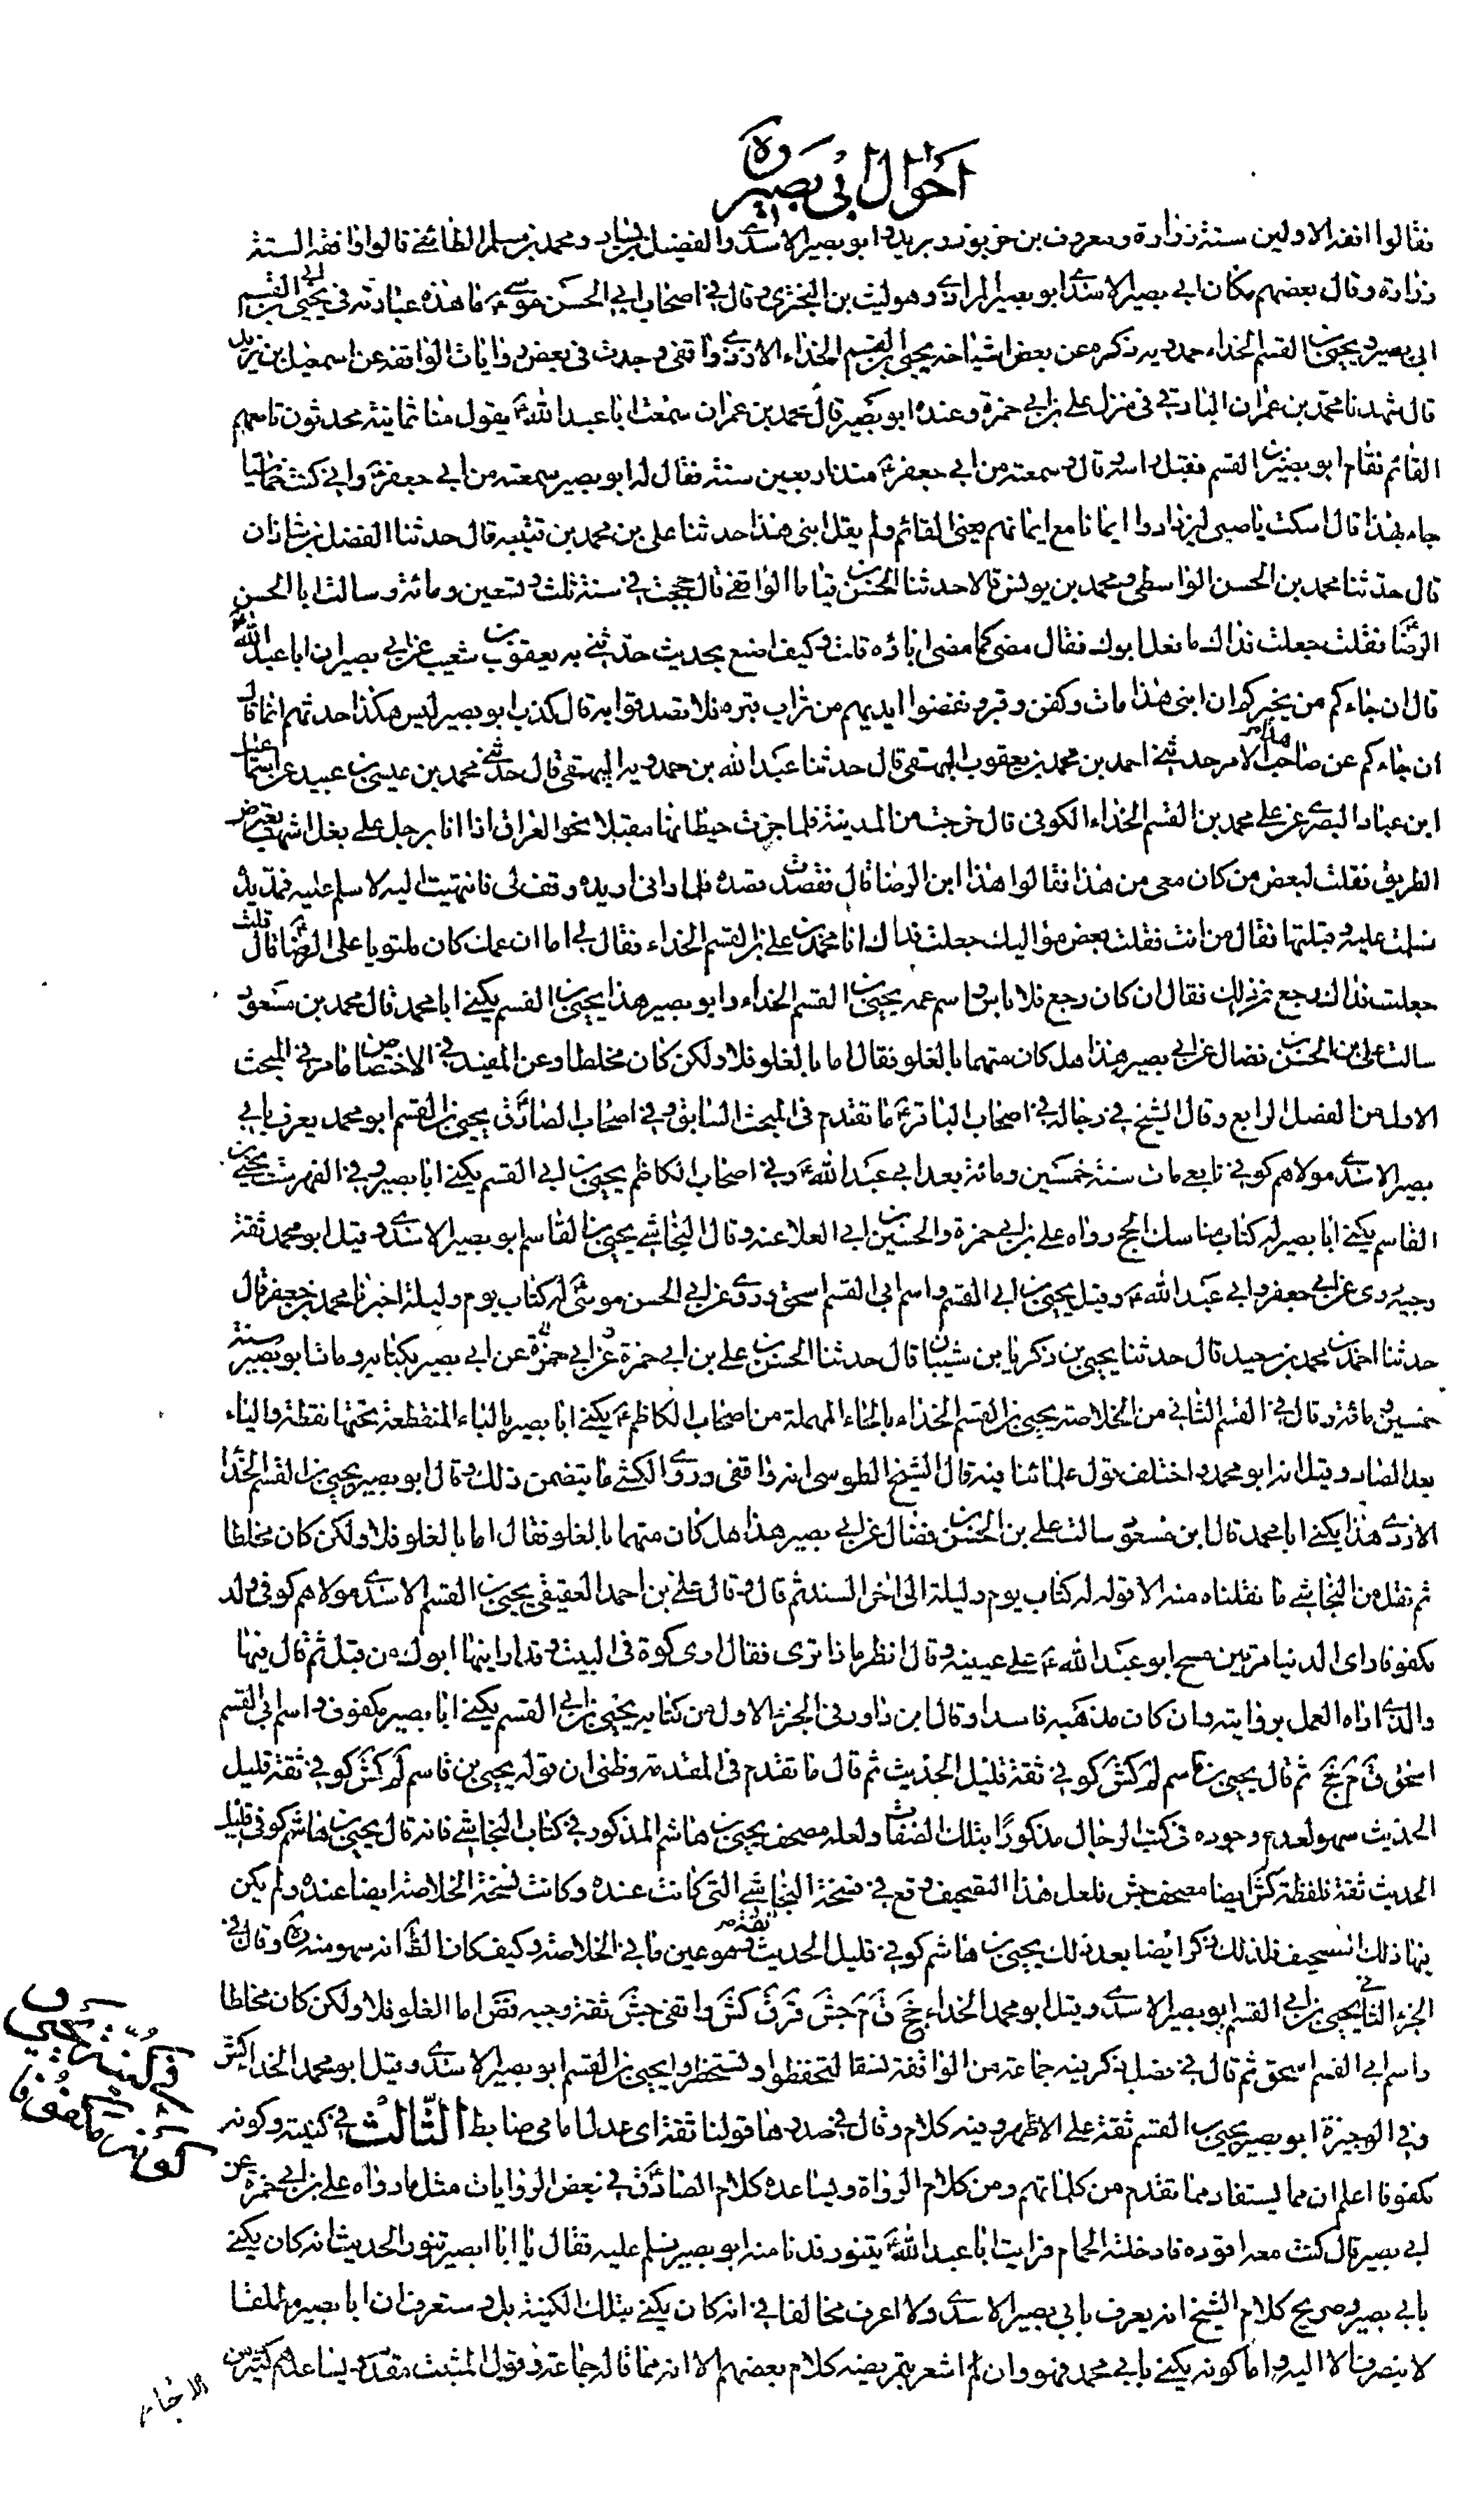 احوال ابي بصير ره
فقالوا افقه الاولين ستة زرارة ومعروف بن خربوذ وبريد وابو بصير الاسدي والفضيل بن يسار ومحمد بن مسلم الطائفي قالوا وافقه الستة
زرارة وقال بعضهم مكان ابي بصير الاسدي ابو بصير المرادي وهو ليث بن البختري وقال في اصحاب ابي الحسن موسى ع ما هذه عبارته في يحيى بن ابي القسم
ابي بصير ويحيى بن القسم الحذاء حمدويه ذكره عن بعض اشياخه يحيى بن القسم الحذاء الازدي واقفي وجدت في بعض روايات الواقفة عن اسمعيل بن يزيد
قال شهدنا محمد بن عمران الباقري في منزل علي بن ابي حمزة وعنده ابو بصير قال محمد بن عمران سمعت ابا عبد الله ع يقول منا ثمانية محدثون تاسعهم
القائم فقام ابو بصير بن القسم فقبل راسه وقال سمعته من ابي جعفر ع منذ اربعين سنة فقال له ابو بصير سمعته من ابي جعفر ع واني كنت خماسيا
جاء بهذا قال اسكت يا صبي ليزدادوا ايمانا مع ايمانهم يعني القائم ولم يقل ابني هذا حدثنا علي بن محمد بن قتيبه قال حدثنا الفضل بن شاذان
قال حدثنا محمد بن الحسن الواسطي ومحمد بن يونس قالا حدثنا الحسن بن قياما الواقفي قال حججت في سنة ثلث وتسعين ومائة وسالت ابا الحسن
الرضا ع فقلت جعلت فداك ما فعل ابوك فقال مضى كما مضى اباؤه قلت وكيف اصنع بحديث حدثني به يعقوب بن شعيب عن ابي بصير ان ابا عبد الله ع
قال ان جاءكم من يخبركم ان ابني هذا مات وكفن وقبر ونفضوا ايديهم من تراب قبره فلا تصدقوا به قال كذب ابو بصير ليس هكذا حدثهم انما قال
ان جاءكم عن صاحب هذا الامر حدثني احمد بن محمد بن يعقوب البيهقي قال حدثنا عبد الله بن حمدويه البيهقي قال حدثني محمد بن عيسى بن عبيد عن اسماعيل
ابن عباد البصري عن علي بن محمد بن القسم الحذاء الكوفي قال خرجت من المدينة فلما جزت حيطانها مقبلا نحو العراق اذا انا برجل على بغل اشهب يعترض
الطريق فقلت لبعض من كان معي من هذا فقالوا هذا ابن الرضا قال فقصدت قصده فلما راني اريده وقف لي فانتهيت اليه لاسلم عليه فمد يده
فسلمت عليه وقبلتها فقال من انت فقلت بعض مواليك جعلت فداك انا محمد بن علي بن القسم الحذاء فقال لي اما ان عمك كان ملتويا على الرضا ع قال قلت
جعلت فداك رجع عن ذلك فقال ان كان رجع فلا باس واسم عمه يحيى بن القسم الحذاء وابو بصير هذا يحيى بن القسم يكنى ابا محمد قال محمد بن مسعود
سالت علي بن الحسن بن فضال عن ابي بصير هذا هل كان متهما بالغلو فقال اما بالغلو فلا ولكن كان مخلطا وعن المفيد في الاختصاص ما مر في المبحث
الاول من الفصل الرابع وقال الشيخ في رجاله في اصحاب الباقر ع ما تقدم في المبحث السابق وفي اصحاب الصادق ع يحيى بن القسم ابو محمد يعرف بابي
بصير الاسدي مولاهم كوفي تابعي مات سنة خمسين ومائة بعد ابي عبد الله ع وفي اصحاب الكاظم يحيى بن ابي القسم يكنى ابا بصير وفي الفهرست يحيى بن
القاسم يكنى ابا بصير له كتاب مناسك الحج رواه علي بن ابي حمزة والحسين بن ابي العلا عنه وقال النجاشي يحيى بن القاسم ابو بصير الاسدي وقيل ابو محمد ثقة
وجيه روى عن ابي جعفر وابي عبد الله ع وقيل يحيى بن ابي القسم واسم ابي القسم اسحق وروى عن ابي الحسن موسى ع له كتاب يوم وليلة اخبرنا محمد بن جعفر قال
حدثنا احمد بن محمد بن سعيد قال حدثنا يحيى بن زكريا بن شيبان قال حدثنا الحسن بن علي بن ابي حمزة عن ابي حمزة عن ابي بصير بكتابه ومات ابو بصير سنة
خمسين ومائة وقال في القسم الثاني من الخلاصة يحيى بن القسم الحذاء بالحاء المهملة من اصحاب الكاظم ع يكنى ابا بصير بالباء المنقطعة تحتها نقطة والياء
بعد الصاد وقيل انه ابو محمد واختلف قول علمائنا فيه قال الشيخ الطوسي انه واقفي وروى الكشي ما يتضمن ذلك وقال ابو بصير يحيى بن القسم الحذاء
الازدي هذا يكنى ابا محمد قال ابن مسعود سالت علي بن الحسن بن فضال عن ابي بصير هذا هل كان متهما بالغلو فقال اما بالغلو فلا ولكن كان مخلطا
ثم نقل من النجاشي ما نقلناه منه الا قوله له كتاب يوم وليلة الى اخر السند ثم قال وقال علي بن احمد العقيقي يحيى بن القسم الاسدي مولاهم كوفي ولد
مكفوفا راى الدنيا مرتين مسح ابو عبد الله ع على عينيه وقال انظر ماذا ترى فقال ارى كوة في البيت وقد ارانيها ابوك من قبل ثم قال فيها
والذي اراه العمل بروايته وان كان مذهبه فاسدا وقال ابن داود في الجزء الاول من كتابه يحيى بن ابي القسم يكنى ابا بصير مكفوف واسم ابي القسم
اسحق ق م جخ ثم قال يحيى بن قاسم لم كش كوفي ثقة قليل الحديث ثم قال ما تقدم في المقدمة وظني ان قوله يحيى بن قاسم لم كش كوفي ثقة قليل
الحديث سهو لعدم وجوده في كتب الرجال مذكورا بتلك الصفات ولعله مصحف يحيى بن هاشم المذكور في كتاب النجاشي فانه قال يحيى بن هاشم كوفي قليل
الحديث ثقة فلفظة كش ايضا مصحف جش فلعل هذا التصحيف وقع في نسخة النجاشي التي كانت عنده وكانت نسخة الخلاصة ايضا عنده ولم يكن
فيها ذلك التصحيف فلذلك ذكر ايضا بعد ذلك يحيى بن هاشم كوفي قليل الحديث ثقة وهو عين ما في الخلاصة وكيف كان الظ انه سهو منه ره وقال في
الجزء الثاني يحيى بن ابي القسم ابو بصير الاسدي وقيل ابو محمد الحذاء جخ ق م جش قر ق كش واقفي جش ثقة وجيه فض اما الغلو فلا ولكن كان مخلطا
واسم ابي القسم اسحق ثم قال في فصل ذكر فيه جماعة من الواقفة يحيى بن القسم ابو بصير الاسدي وقيل ابو محمد الحذاء كش
وفي الوجيزة ابو بصير يحيى بن القسم ثقة على الاظهر وفيه كلام وقال في صدرها قولنا ثقة اي عدل امامي ضابط الثالث في كنيته وكونه
مكفوفا اعلم ان مما يستفاد مما تقدم من كلماتهم ومن كلام الرواة ويساعده كلام الصادق ع في بعض الروايات مثل ما رواه علي بن ابي حمزة عن
ابي بصير قال كنت معه اقوده فادخلته الحمام فرايت ابا عبد الله ع يتنور فدنا منه ابو بصير فسلم عليه فقال يا ابا بصير تنور الحديث انه كان يكنى
بابي بصير وصريح كلام الشيخ انه يعرف بابي بصير الاسدي ولا اعرف مخالفا في انه كان يكنى بتلك الكنية بل وستعرف ان ابا بصير مطلقا
لا ينصرف الا اليه واما كونه يكنى بابي محمد فهو وان اشعر بتمريضه كلام بعضهم الا انه مما قاله جماعة وقول المثبت مقدم ويساعدهم كثير من
الاخبار
في كنية يحيى و
كونه مكفوفا